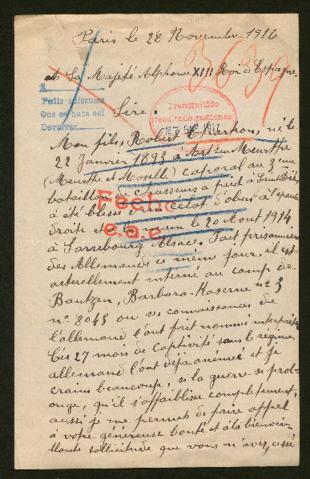 Paris le 28 Novembre 1916
3639
A Sa Majesté Alphonse XIII Roi d'Espagne.
Pedir informes
Que se haga así
Devolver
Sire:
Transmitido
resultado gestiones
Mon fils, Robert né le
22 Janvier 1893 à Art sur Meurthe
(Meurthe et Moselle) caporal au 3ème
bataillon de chasseurs à pied à Saint Dié
a été blessé d'un éclat d'obus à l'épaule
droite et le 20 Août 1914
à Sarrebourg Alsace. Fait prisonnier
des Allemands ce même jour, il est
actuellement interné au camp de
Bautzen, Barbara-Kaserne nº 3
nº 8043 ou ses connaissances de
l'allemand l'ont fait nommé interprète
Ces 27 mois de captivité sous le régime
allemand l'ont déja anémié et je
crains beaucoup, si la guerre se prol-
onge, qu'il s'affaiblisse complètement,
aussi je me permets de faire appel
à votre généreuse bonté et à la bienveil-
lante sollicitude que vous n'avez cessé
Fech.